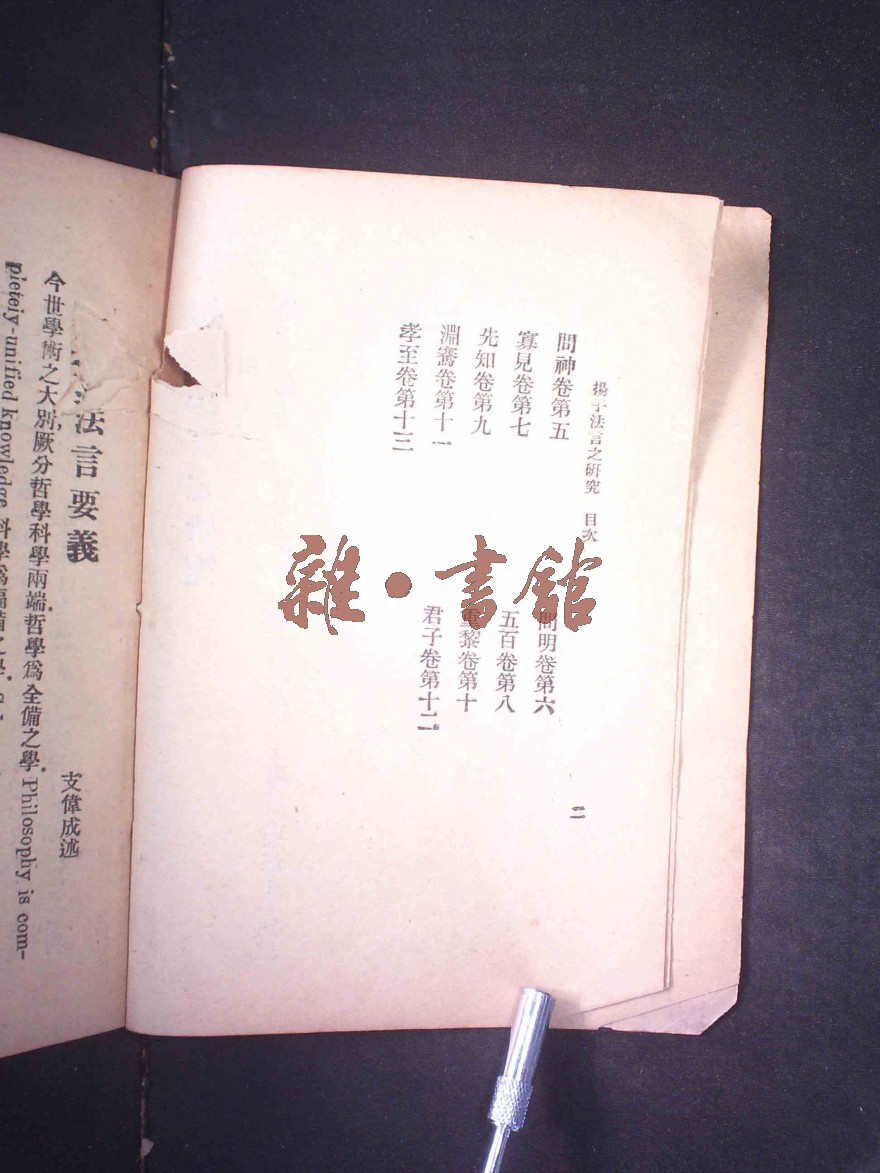 揚子法言之研究 目次
二
問神卷第五
問明卷第六
寡見卷第七
五百卷第八
先知卷第九
重黎卷第十
淵騫卷第十一
君子卷第十二
孝至卷第十三
法言要義
支偉成述
今世學術之大別，厥分哲學科學兩端。哲學爲全備之學。Philosophy is com-
pletely-unified knowledge.
雜·書館